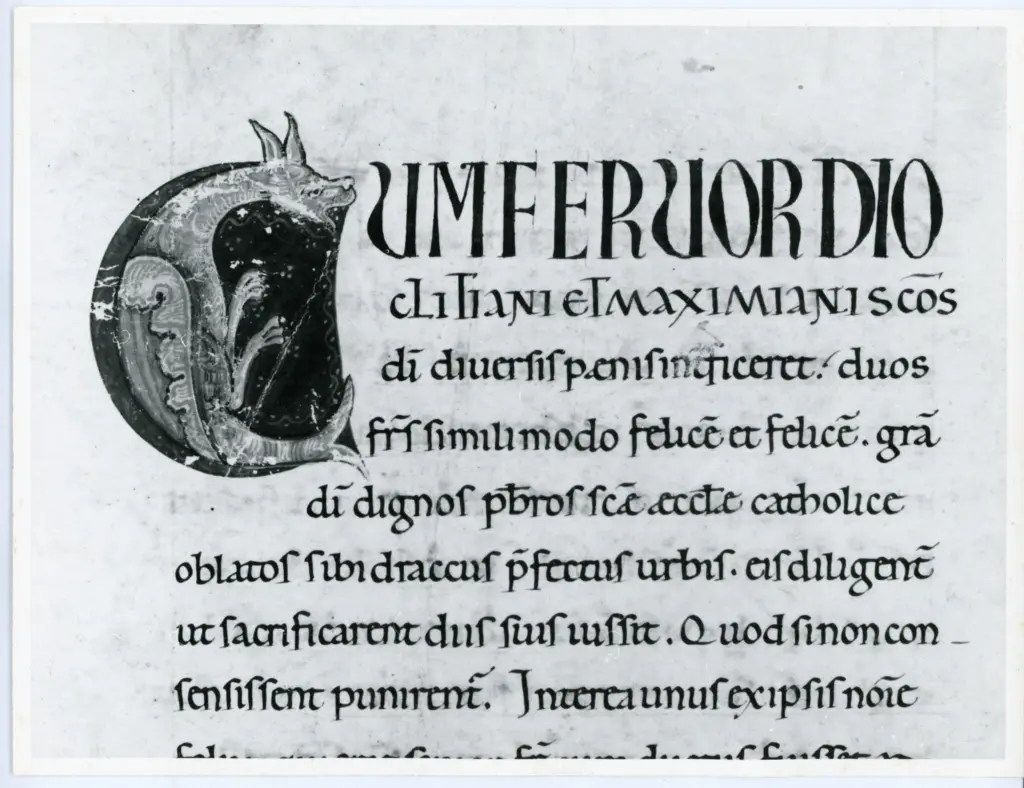 CUM FERUOR DIO
CLITIANI ET MAXIMIANI SCOS
dī diuersis pęnis interficeret. duos
frs̄ simili modo felicē et felicē. grā
dī dignos pb̄ros scę̄ ęccl̄ę catholice
oblatos sibi draccus p̄fectus urbis. eis diligent̄
ut sacrificarent diis suis iussit. Quod si non con-
sensissent punirent̄. Interea unus ex ipsis noīe